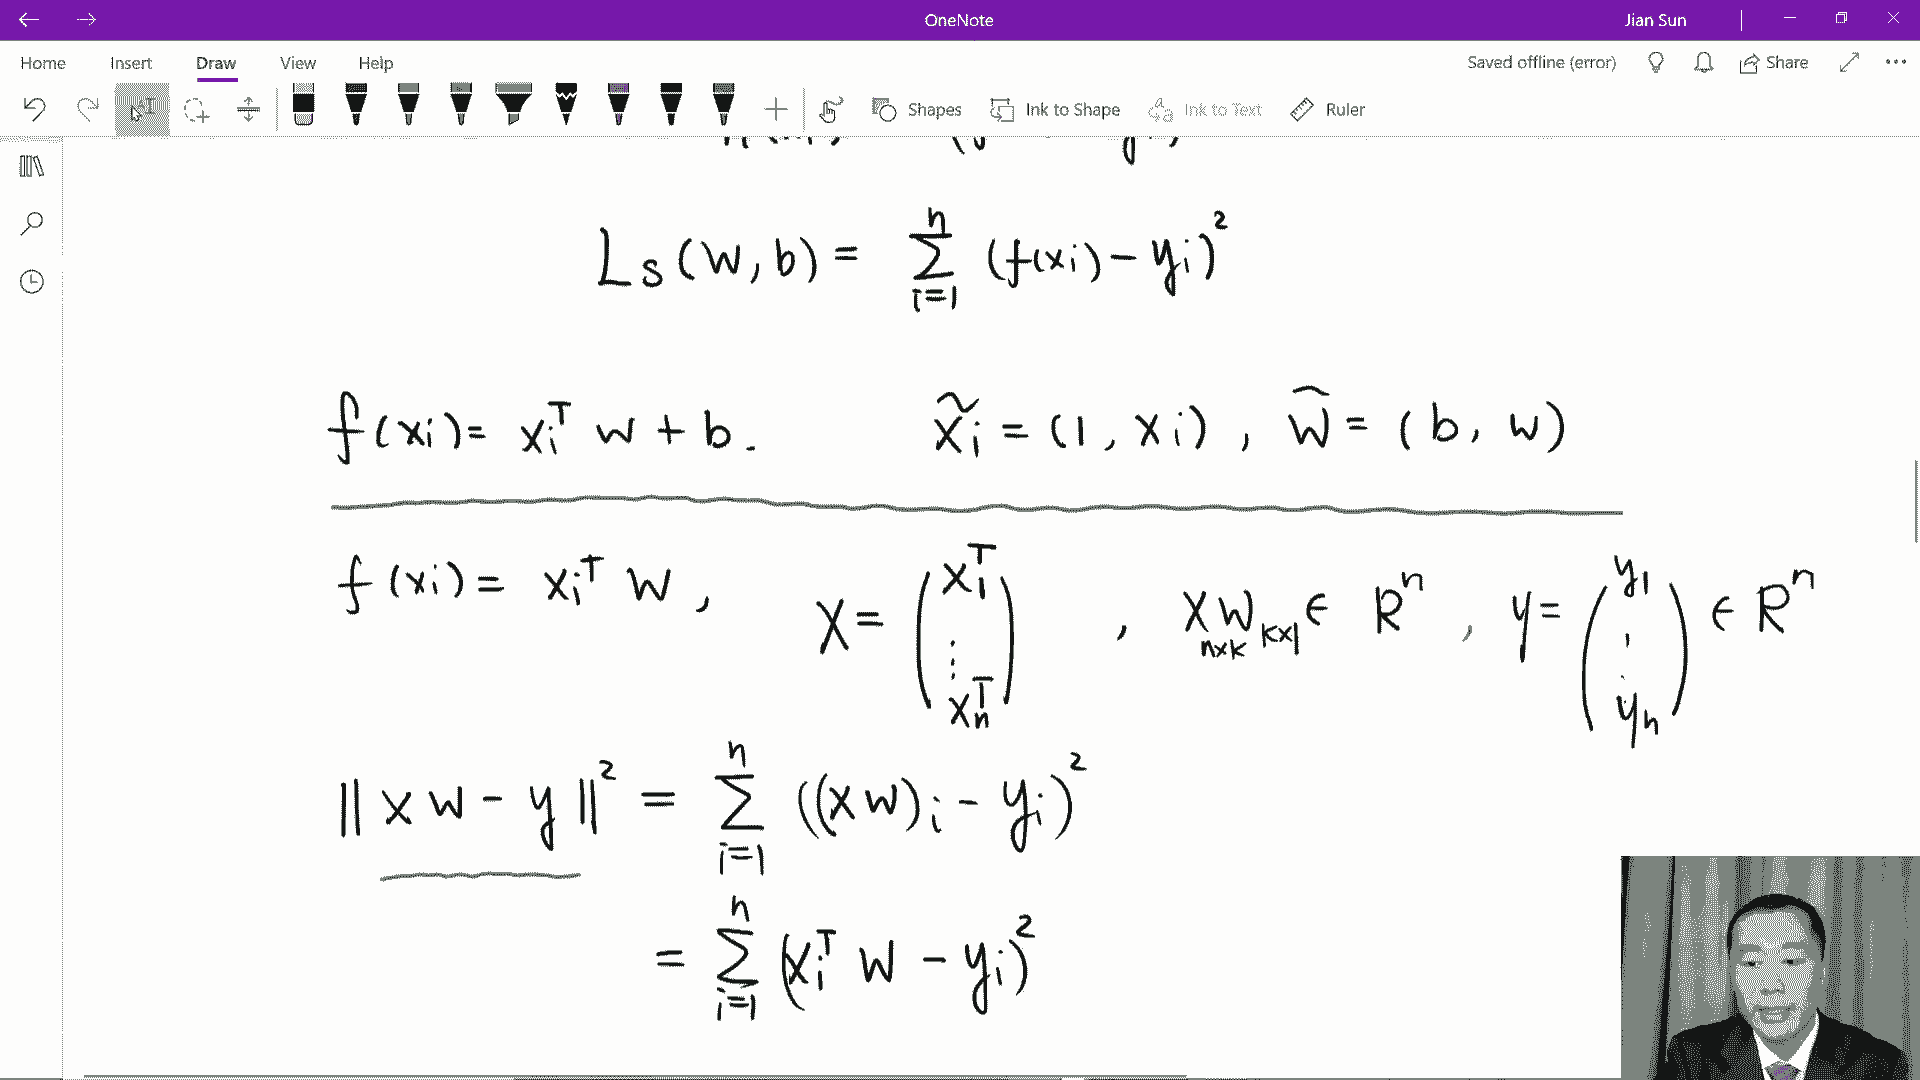 OneNote
Jian Sun
Home Insert Draw View Help
Saved offline (error) Share
Shapes Ink to Shape Ink to Text Ruler
Ls(w, b) = Σ_{i=1}^{n} (f(xi) - yi)²
f(xi) = xiᵀ w + b. x̃i = (1, xi), w̃ = (b, w)
f(xi) = xiᵀ w, X = (x1ᵀ ⋮ xnᵀ), X_{n×k} w_{k×1} ∈ Rⁿ, y = (y1 ⋮ yn) ∈ Rⁿ
‖ x w - y ‖² = Σ_{i=1}^{n} ((x w)i - yi)²
= Σ_{i=1}^{n} (xiᵀ w - yi)²